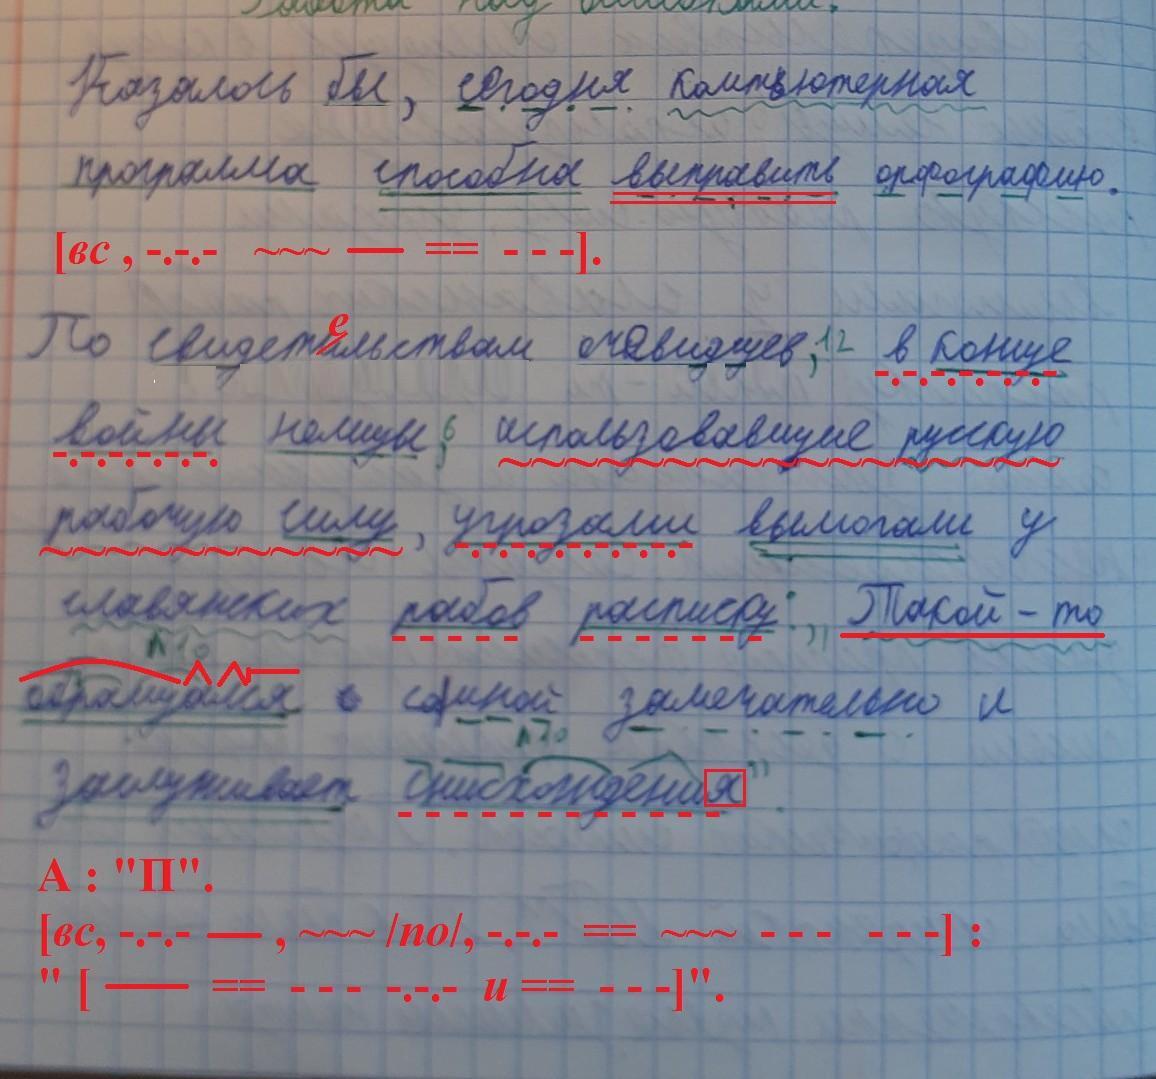 Работа над ошибками.
Казалось бы, сегодня компьютерная
программа способна выправить орфографию.
[вс , -.-.- ~~~ — == - - -].
По свидетельствам очевидцев,12 в конце
войны немцы,6 использовавшие русскую
рабочую силу, угрозами вымогали у
славянских рабов расписку: „Такой-то
^10
обращался с о мной замечательно и
^20
заслуживает снисхождения"
А : "П".
[вс, -.-.- — , ~~~ /по/, -.-.- == ~~~ - - - - - -] :
" [ — == - - - -.-.- и == - - -]".